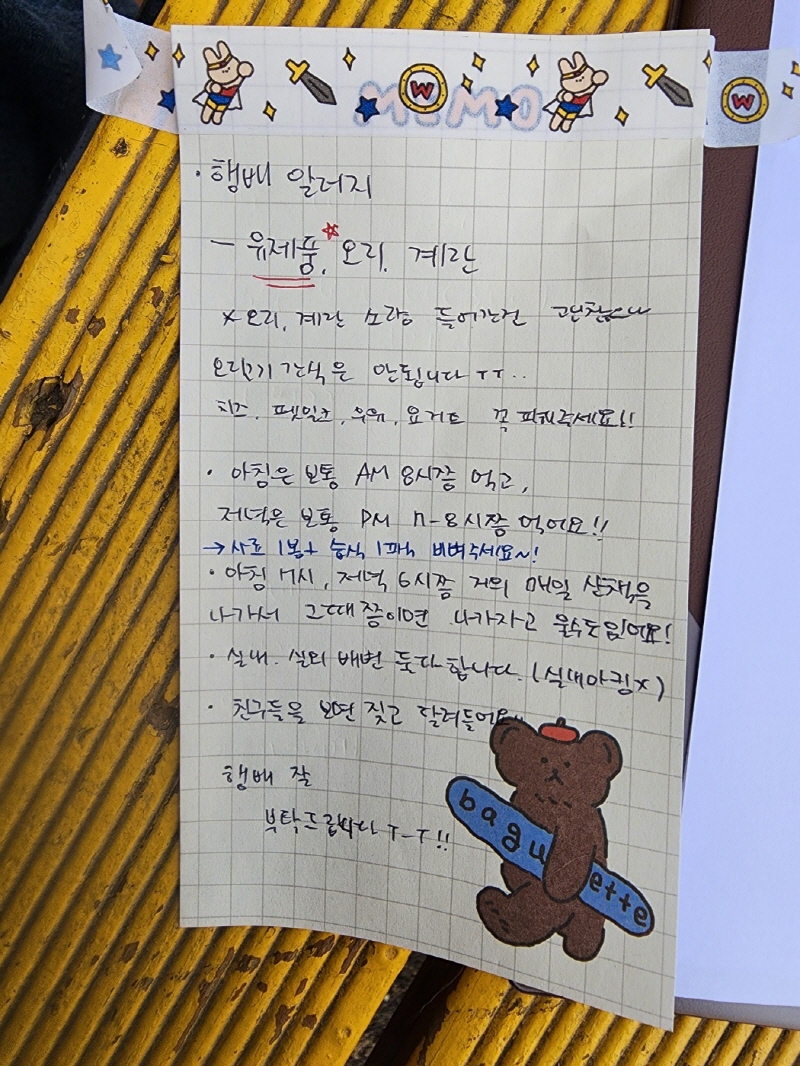 W
W
· 행배 알러지
- 유제품, 오리, 계란
x 오리, 계란 소량 들어간건 괜찮으나
오리고기 간식은 안됩니다 ㅜㅜ..
치즈, 우유, 요거트 꼭 피해주세요!!
· 아침은 보통 AM 8시쯤 먹고,
저녁은 보통 PM 7-8시쯤 먹어요!!
→ 사료 1봉+ 습식 1팩 비벼주세요~!
· 아침 7시, 저녁 6시쯤 거의 매일 산책을
나가서 그때쯤이면 나가자고 울수도있어요!
· 실내. 실외 배변 둘다합니다. (실내마킹x)
· 친구들을 보면 짖고 달려들어요
행배 잘
부탁드립니다 ㅜ-ㅜ!!
baguette